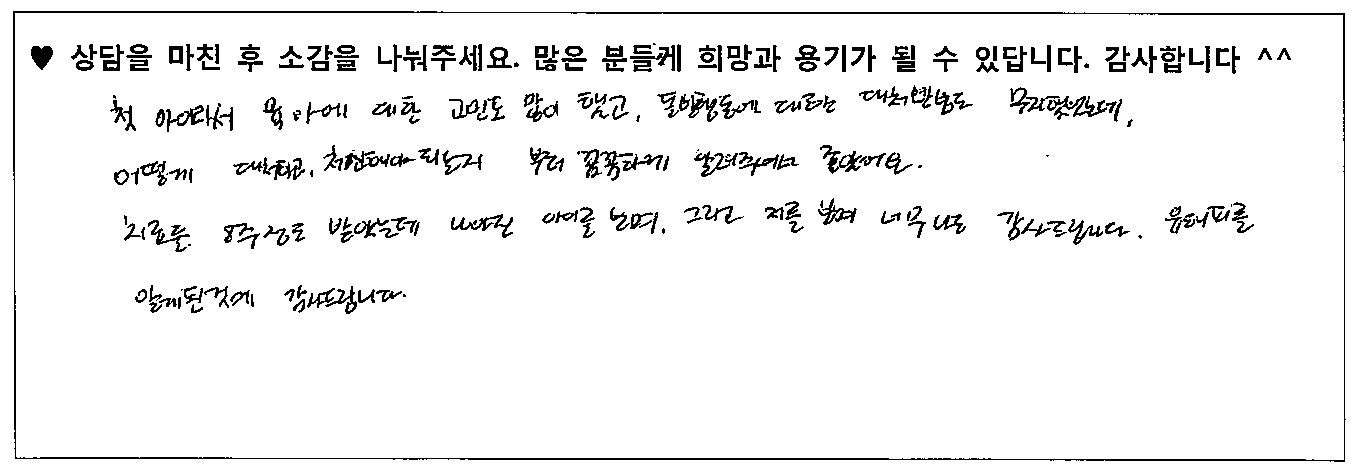 ♥ 상담을 마친 후 소감을 나눠주세요. 많은 분들께 희망과 용기가 될 수 있답니다. 감사합니다 ^^
첫 아이라서 육아에 대한 고민도 많이 됐고, 돌발행동에 대한 대처방법도 무지했었는데,
어떻게 대처하고, 해야 되는지 부터 꼼꼼하게 알려주셔서 좋았어요.
치료를 8주정도 받았는데 나아진 아이를 보며, 그리고 저를 보며 너무나도 감사드립니다. 윰테피를
알게된것에 감사드립니다.